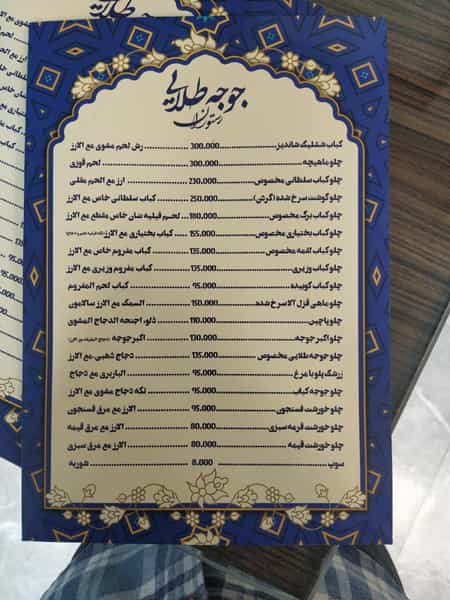 جوجه طلایی
رستوران
کباب ششلیک شاندیز 300.000 رش لحم مشوی مع الارز
چلو ماهیچه 300.000 لحم قوزی
چلو کباب سلطانی مخصوص 230.000 ارز مع الحم مقلی
چلو گوشت سرخ شده (کرش) 250.000 کباب سلطانی خاص مع الارز
چلو کباب برگ مخصوص 180.000 لحم فیلیه ضان خاص مقطع مع الارز
چلو کباب بختیاری مخصوص 155.000 کباب بختیاری مع الارز
چلو کباب لقمه مخصوص 135.000 کباب مفروم خاص مع الارز
چلو کباب وزیری 135.000 کباب مفروم وزیری مع الارز
چلو کباب کوبیده 95.000 کباب لحم المفروم
چلو ماهی قزل آلا سرخ شده 150.000 السمک مع الارز سالامون
چلو پاچین 110.000 دلو، اجنحه الدجاج المشوی
چلو اکبر جوجه 130.000 اکبر جوجه
چلو جوجه طلایی مخصوص 135.000 دجاج ذهبی.مع الارز
زرشک پلو با مرغ 95.000 الباریزی مع دجاج
چلو جوجه کباب 95.000 تکه دجاج مشوی مع الارز
چلو خورشت فسنجون 95.000 الارز مع مرق فسنجون
چلو خورشت قرمه سبزی 80.000 الارز مع مرق قیمه
چلو خورشت قیمه 80.000 الارز مع مرق سبزی
سوپ 8.000 شوربه